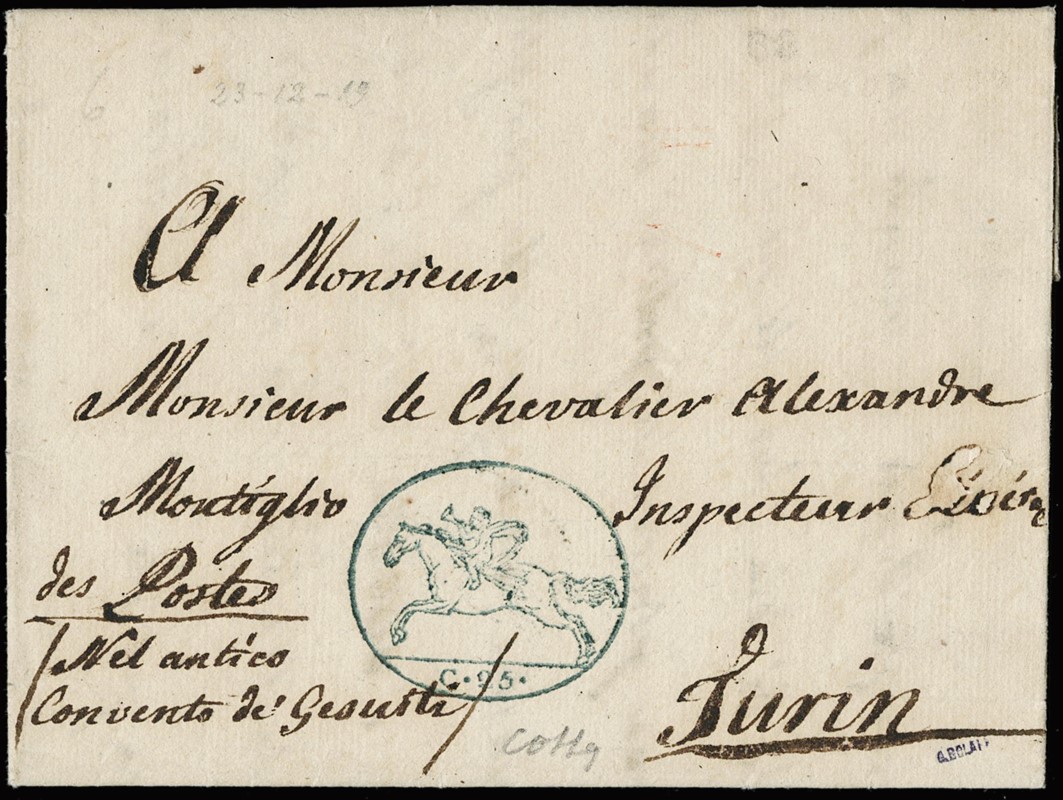 6
23-12-19
A Monsieur
Monsieur le Chevalier Alexandre
Montiglio Inspecteur
des Postes
/Nel antico
Convento de' Gesuiti/
C. 25.
Turin